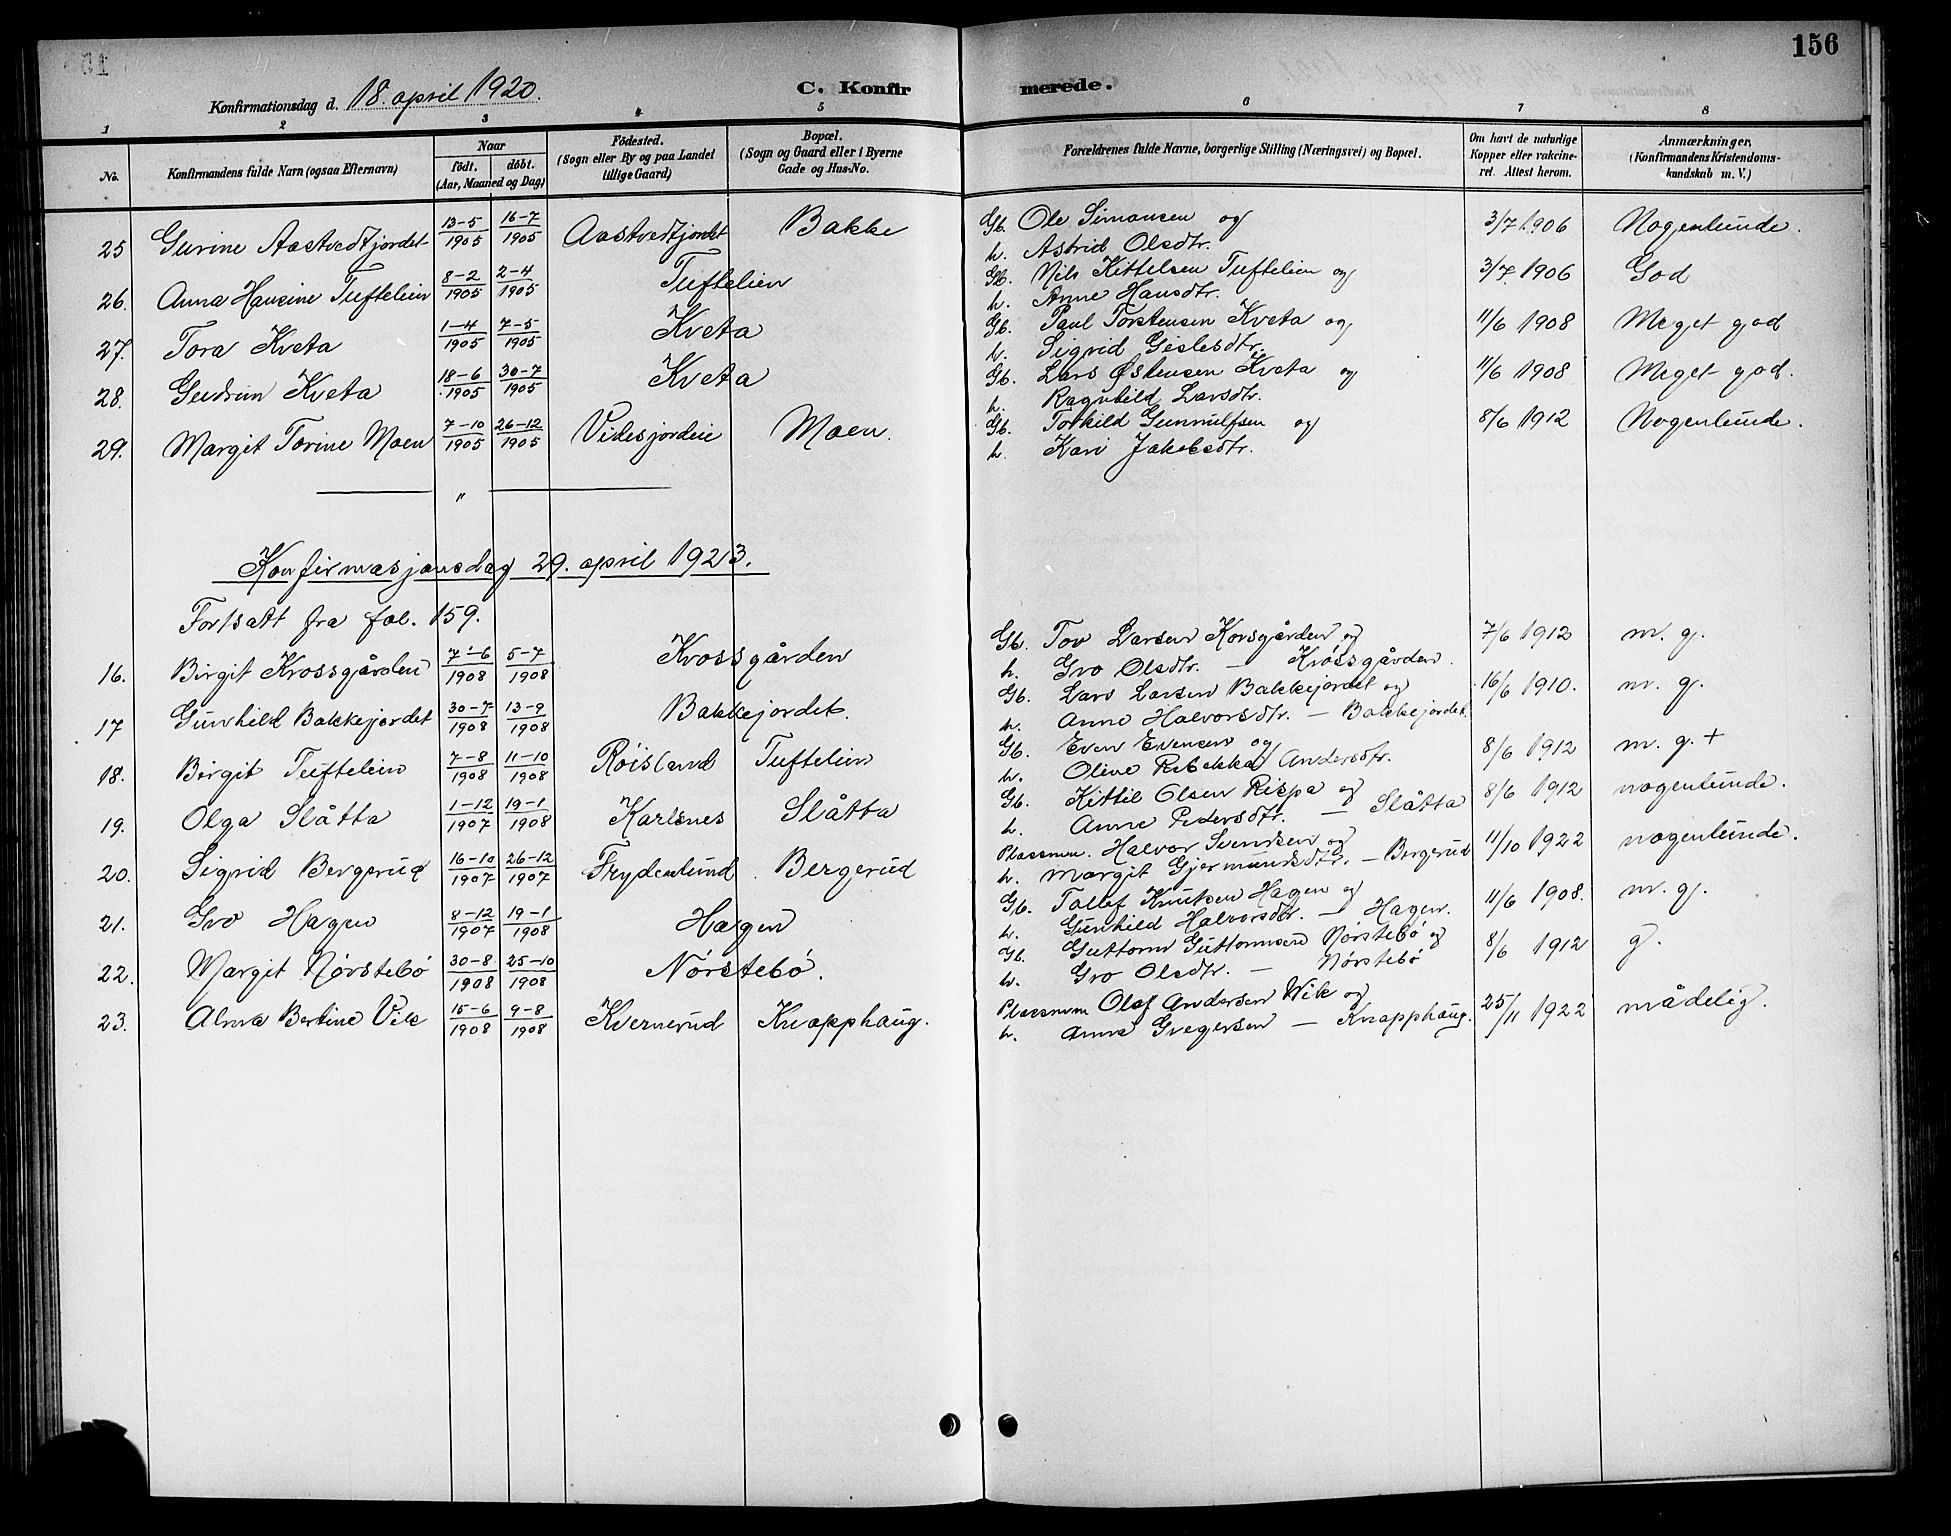 156
Konfirmationsdag d. 18. april 1920. C. Konfir merede.
1 2 3 4 5 6 7 8
No. Konfirmandens fulde Navn (ogsaa Efternavn) Naar födt. döbt. (Aar, Maaned og Dag) Födested. (Sogn eller By og paa Landet tillige Gaard) Bopæl. (Sogn og Gaard eller i Byerne Gade og Hus-No. Forældrenes fulde Navne, borgerlige Stilling (Næringsvei) og Bopæl. Om havt de naturlige Kopper eller vakcineret. Attest herom. Anmærkninger, (Konfirmandens Kristendomskundskab m. V.)
25 Gurine Aastvedtjordet 13-5 1905 16-7 1905 Aastvedtjordet Bakke Gb. Ole Simonsen og h. Astrid Olsdtr. 3/7 1906 Nogenlunde.
26. Anna Hansine Tuftelien 8-2 1905 2-4 1905 Tuftelien Gb. Nils Kittelsen Tuftelien og h. Anne Hansdtr. 3/7 1906 God
27. Tora Kveta 1-4 1905 7-5 1905 Kveta Gb. Paul Torstensen Kveta og h. Sigrid Gislesdtr. 11/6 1908 Meget god
28. Gudrun Kveta 18-6 1905 30-7 1905 Kveta Gb. Lars Østensen Kveta og h. Ragnhild Larsdtr. 11/6 1908 Meget god.
29. Margit Torine Moen 7-10 1905 26-12 1905 Videsjordeie Moen. Gb. Torkild Gunnulfsen og h. Kari Jakobsdtr. 8/6 1912 Nogenlunde.
"
Konfirmasjonsdag 29. april 1923.
Fortsatt fra fol. 159.
16. Birgit Krossgården 7-6 1908 5-7 1908 Krossgården Gb. Tov Larsen Korsgården og h. Gro Olsdtr. — Krossgården. 7/6 1912 m. g.
17 Gunhild Bakkejordet 30-7 1908 13-9 1908 Bakkejordet. Gb. Lars Larsen Bakkejordet og h. Anne Halvorsdtr. — Bakkejordet. 16/6 1910. m. g.
18. Birgit Tuftelein 7-8 1908 11-10 1908 Röisland Tuftelien Gb. Even Evensen og h. Oline Rebekka Andersdtr. 8/6 1912 m. g. +
19. Olga Slåtta 1-12 1907 19-1 1908 Karlsnes Slåtta Gb. Kittil Olsen Rispa og h. Anne Pedersdtr. — Slåtta 8/6 1912 nogenlunde.
20. Sigrid Bergerud 16-10 1907 26-12 1907 Frydenlund Bergerud Plassmn. Halvor Svendsen og h. Margit Gjermundsdtr. — Bergerud 11/10 1922 nogenlunde.
21. Gro Hagen 8-12 1907 19-1 1908 Hagen Gb. Tollef Knutsen Hagen og h. Gunhild Halvorsdtr. — Hagen. 11/6 1908. m. g.
22. Margit Nörstebö 30-8 1908 25-10 1908 Nörstebö. Gb. Guttorm Guttormsen Nörstebö og h. Gro Olsdtr. — Nörstebö 8/6 1912 g.
23. Alma Bertine Vik 15-6 1908 9-8 1908 Kvernerud Knapphaug. Plassmnn Olaf Andersen Wik og h. Anna Gregersen — Knapphaug. 25/11 1922 mådelig.